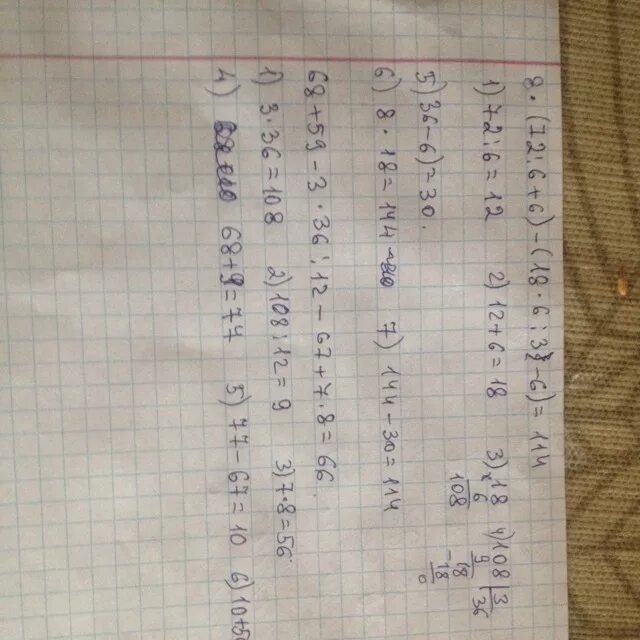 8 · (72 : 6 + 6) - (18 · 6 : 3 - 6) = 114
1) 72 : 6 = 12   2) 12 + 6 = 18   3) × 18   4) 108 | 3
6   9   36
108   - 18
18
0
5) 36 - 6) = 30.
6) 8 · 18 = 144   7) 144 - 30 = 114
68 + 59 - 3 · 36 : 12 - 67 + 7 · 8 = 66
1) 3 · 36 = 108   2) 108 : 12 = 9   3) 7 · 8 = 56
4) 68 + 9 = 77   5) 77 - 67 = 10   6) 10 + 5